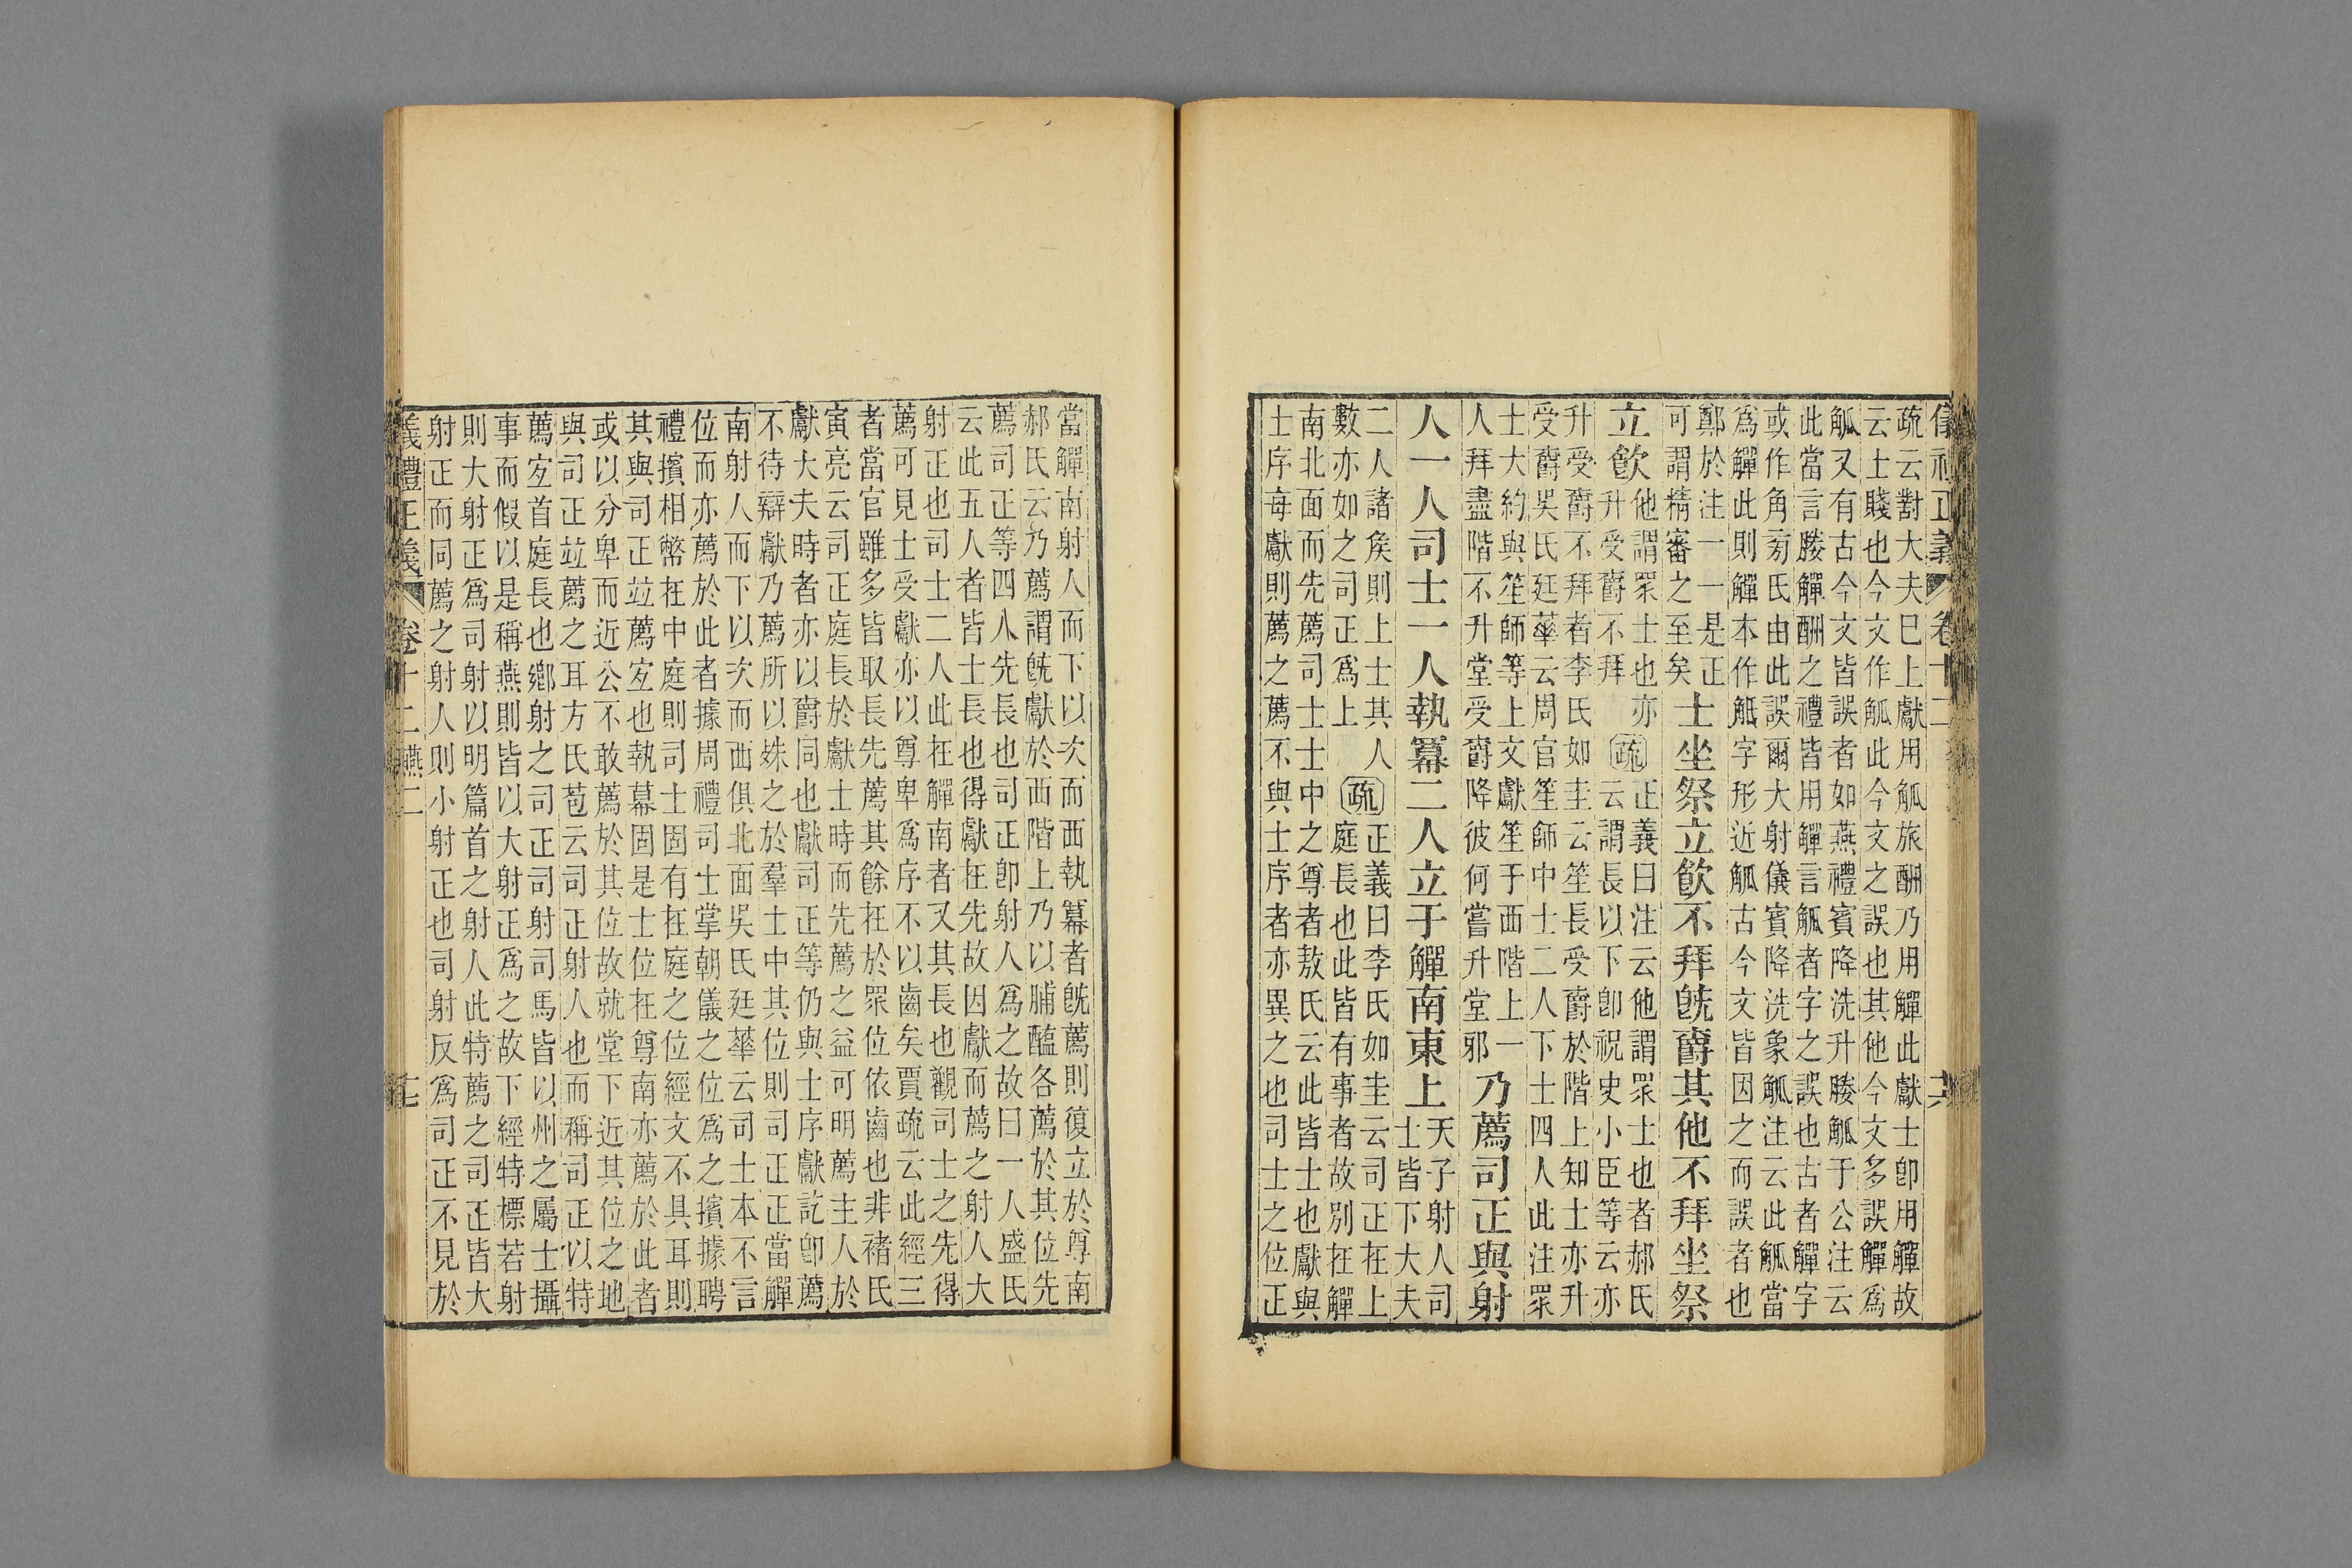 儀禮正義 卷十二 十六
疏云對大夫巳上獻用觚旅酬乃用觶此獻士卽用觶故
云士賤也今文作觚此今文之誤也其他今文多誤觶爲
觚又有古今文皆誤者如燕禮賓降洗升媵觚于公注云
此當言媵觶酬之禮皆用觶言觚者字之誤也古者觶字
或作角旁氏由此誤爾大射儀賓降洗象觚注云此觚當
爲觶此則觶本作觗字形近觚古今文皆因之而誤者也
鄭於注一一是正
可謂精審之至矣
士坐祭立飮不拜旣爵其他不拜坐祭
立飮
他謂眾士也亦
升受爵不拜
疏
正義曰注云他謂眾士也者郝氏
云謂長以下卽祝史小臣等云亦
升受爵不拜者李氏如圭云笙長受爵於階上知士亦升
受爵吳氏廷華云周官笙師中士二人下士四人此注眾
士大約與笙師等上文獻笙于西階上一
人拜盡階不升堂受爵降彼何嘗升堂邪
乃薦司正與射
人一人司士一人執冪二人立于觶南東上
天子射人司
士皆下大夫
二人諸矦則上士其人
數亦如之司正爲上
疏
正義曰李氏如圭云司正在上
庭長也此皆有事者故別在觶
南北面而先薦司士士中之尊者敖氏云此皆士也獻與
士序每獻則薦之薦不與士序者亦異之也司士之位正
當觶南射人而下以次而西執冪者旣薦則復立於尊南
郝氏云乃薦謂旣獻於西階上乃以脯醢各薦於其位先
薦司正等四人先長也司正卽射人爲之故曰一人盛氏
云此五人者皆士長也得獻在先故因獻而薦之射人大
射正也司士二人此在觶南者又其長也觀司士之先得
薦可見士受獻亦以尊卑爲序不以齒矣賈疏云此經三
者當官雖多皆取長先薦其餘在於眾位依齒也非褚氏
寅亮云司正庭長於獻士時而先薦之益可明薦主人於
獻大夫時者亦以爵同也獻司正等仍與士序獻訖卽薦
不待辯獻乃薦所以殊之於羣士中其位則司正正當觶
南射人而下以次而西俱北面吳氏廷華云司士本不言
位而亦薦於此者據周禮司士掌朝儀之位爲之擯據聘
禮擯相幣在中庭則司士固有在庭之位經文不具耳則
其與司正竝薦宐也執幕固是士位在尊南亦薦於此者
或以分卑而近公不敢薦於其位故就堂下近其位之地
與司正竝薦之耳方氏苞云司正射人也而稱司正以特
薦宐首庭長也鄉射之司正司射司馬皆以州之屬士攝
事而假以是稱燕則皆以大射正爲之故下經特標若射
則大射正爲司射以明篇首之射人此特薦之司正皆大
射正而同薦之射人則小射正也司射反爲司正不見於
義禮正義 卷十二 燕二 十七